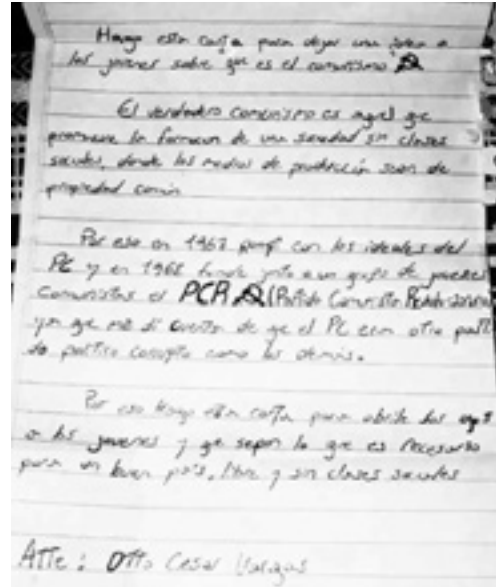 Hago esta carta para dejar una idea a
los jovenes sobre que es el comunismo
El verdadero comunismo es aquel que
promueve la formacion de una sociedad sin clases
sociales, donde los medios de producción sean de
propiedad común
Por eso en 1967 rompí con los ideales del
PC y en 1968 funde junto a un grupo de jovenes
Comunistas el PCR (Partido Comunista Revolucionario)
ya que me di cuenta de que el PC era otro parti
do politico corrupto como los demás.
Por eso hago esta carta para abrirle los ojos
a los jovenes y que sepan lo que es necesario
para un buen país, libre y sin clases sociales
Atte: Otto Cesar Vargas